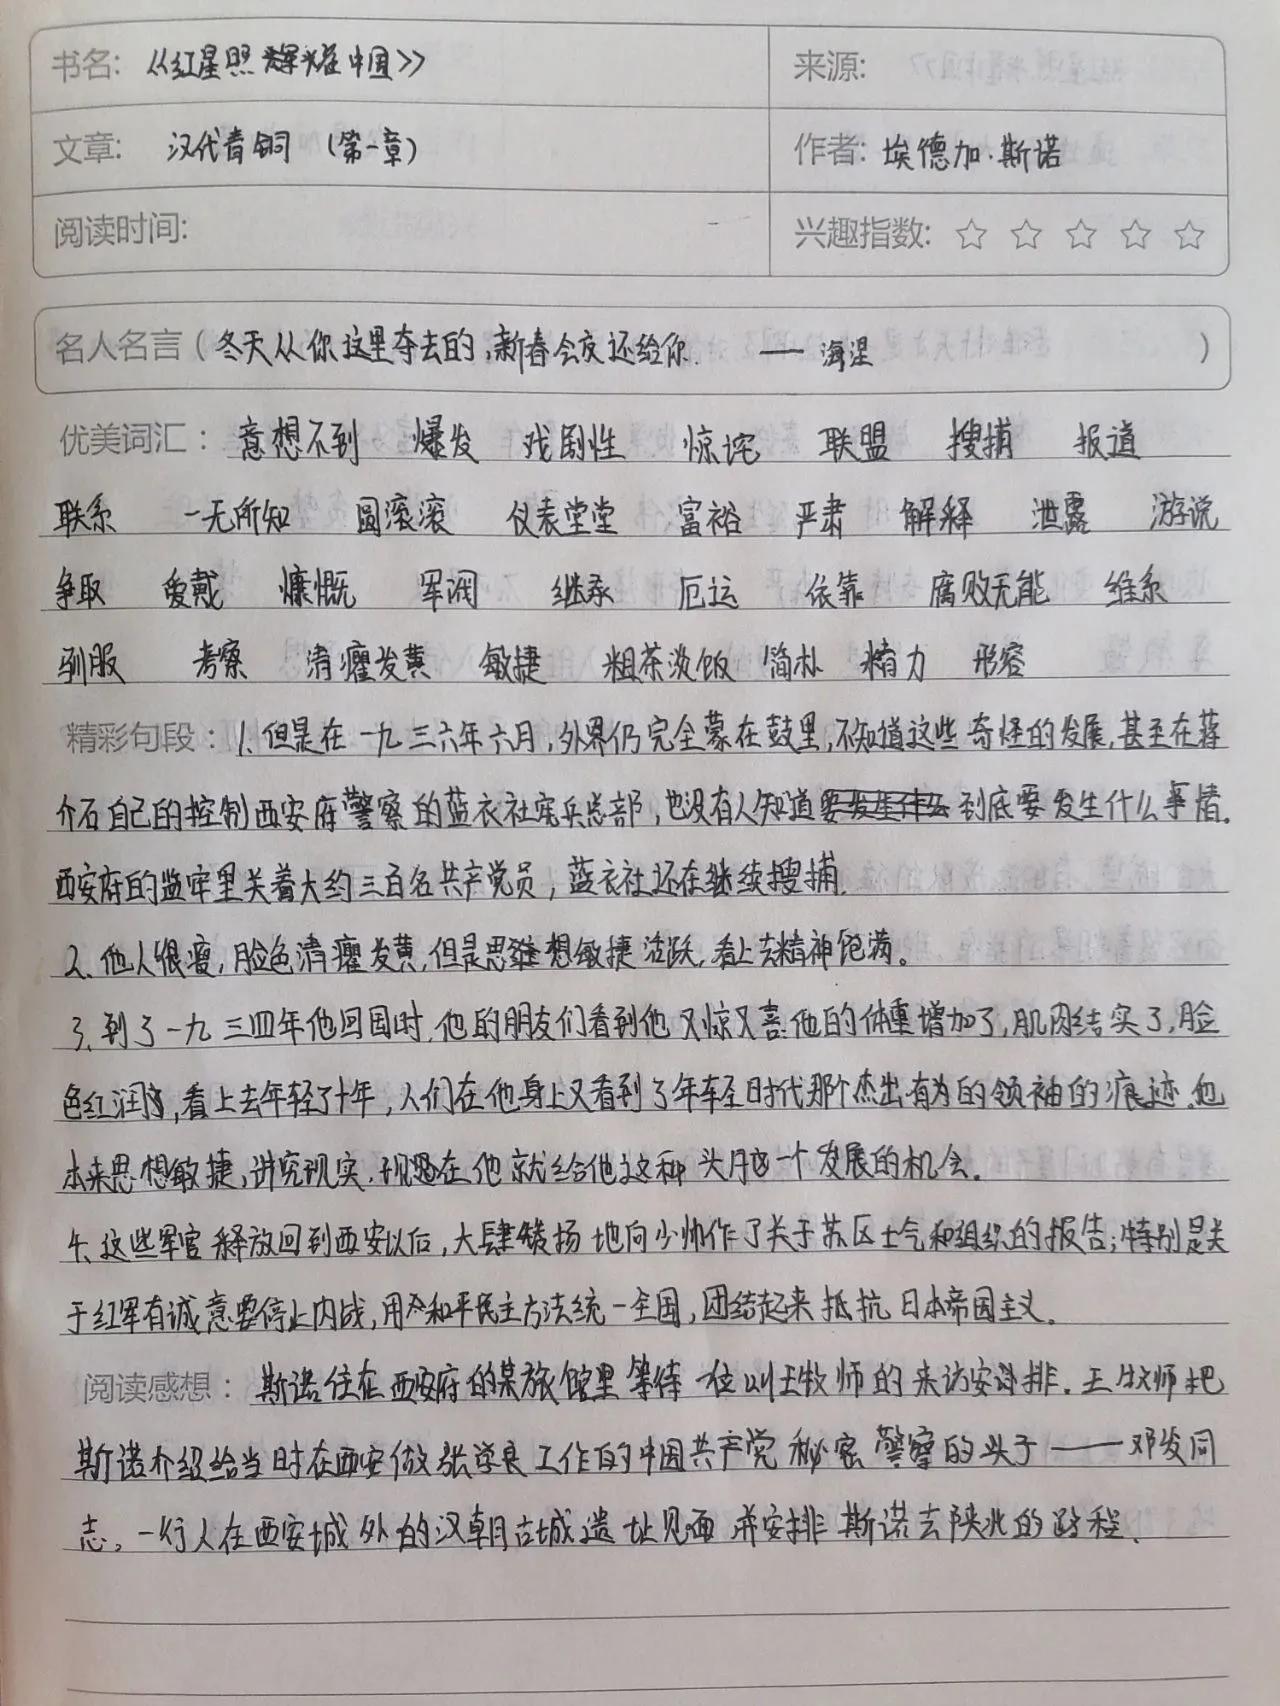 书名: 《红星照耀中国》
来源:
文章: 汉代青铜 (第一章)
作者: 埃德加·斯诺
阅读时间:
兴趣指数: ☆ ☆ ☆ ☆ ☆
名人名言 ( 冬天从你这里夺去的,新春会交还给你. —— 海涅 )
优美词汇: 意想不到 爆发 戏剧性 惊诧 联盟 搜捕 报道
联系 一无所知 圆滚滚 仪表堂堂 富裕 严肃 解释 泄露 游说
争取 爱戴 慷慨 军阀 继承 厄运 依靠 腐败无能 维系
驯服 考察 清癯发黄 敏捷 粗茶淡饭 简朴 精力 形容
精彩句段: 1.但是在一九三六年六月,外界仍完全蒙在鼓里,不知道这些奇怪的发展,甚至在蒋
介石自己的控制西安府警察的蓝衣社宪兵总部,也没有人知道到底要发生什么事情.
西安府的监牢里关着大约三百名共产党员,蓝衣社还在继续搜捕.
2.他人很瘦,脸色清癯发黄,但是思想敏捷活跃,看上去精神饱满。
3.到了一九三四年他回国时,他的朋友们看到他又惊又喜.他的体重增加了,肌肉结实了,脸
色红润,看上去年轻了十年,人们在他身上又看到了年轻时代那个杰出有为的领袖的痕迹.他
本来思想敏捷,讲究现实,现在他就给他这种头脑一个发展的机会。
4.这些军官释放回到西安以后,大肆赞扬地向少帅作了关于苏区士气和组织的报告;特别是关
于红军有诚意要停止内战,用和平民主方法统一全国,团结起来抵抗日本帝国主义。
阅读感想: 斯诺住在西安府的某旅馆里等待一位叫王牧师的来访安排.王牧师把
斯诺介绍给当时在西安做张学良工作的中国共产党秘密警察的头子——邓发同
志。一行人在西安城外的汉朝古城遗址见面并安排斯诺去陕北的路程.